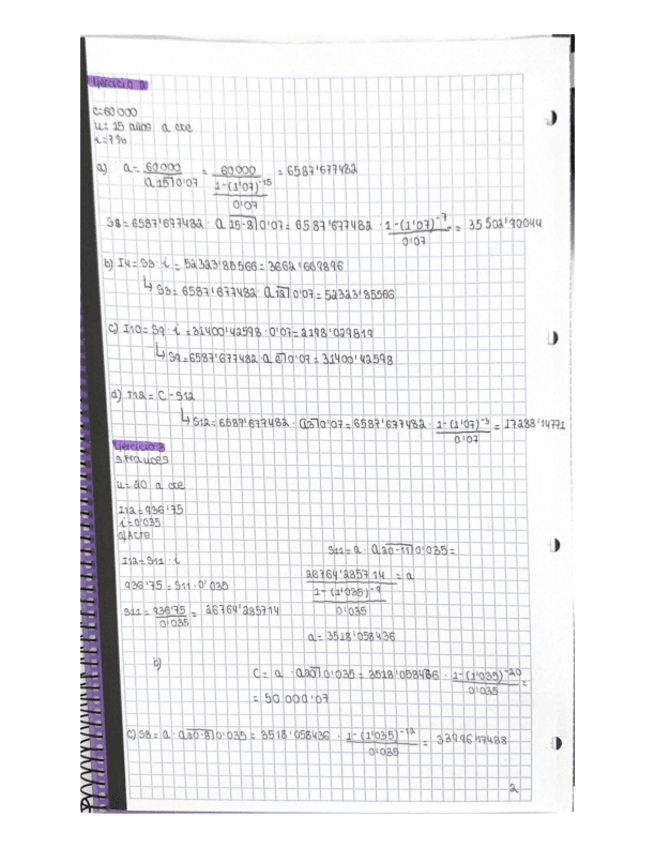 Ejercicio 2
C=60 000
n= 15 años a cte
i=7%
a) a= 60000 / a 15┐0'07 = 60000 / (1-(1'07)^-15 / 0'07) = 6587'677482
S8= 6587'677482 · a 15-8┐0'07= 6587'677482 · 1-(1'07)^-7 / 0'07 = 35502'90044
b) I4= S3 · i = 52323'85566= 3662'669896
↳ S3= 6587'677482 · a 12┐0'07= 52323'85566
c) I10= S9 · i = 31400'42598 · 0'07= 2198'029819
↳ S9= 6587'677482 · a 6┐0'07= 31400'42598
d) M12= C - S12
↳ S12= 6587'677482 · a 3┐0'07= 6587'677482 · 1-(1'07)^-3 / 0'07 = 17288'14771
Ejercicio 3
P. Francés
n= 20 a cte
I12= 936'75
i= 0'035
a) A cte
I12= S11 · i
936'75= S11 · 0'035
S11= 936'75 / 0'035 = 26764'285714
S11= a · a 20-11┐0'035=
26764'285714 / (1-(1'035)^-9 / 0'035) = a
a= 3518'058436
b) C= a · a 20┐0'035= 3518'058436 · 1-(1'035)^-20 / 0'035 =
= 50 000'07
c) S8= a · a 20-8┐0'035= 3518'058436 · 1-(1'035)^-12 / 0'035 = 33996'17438
2